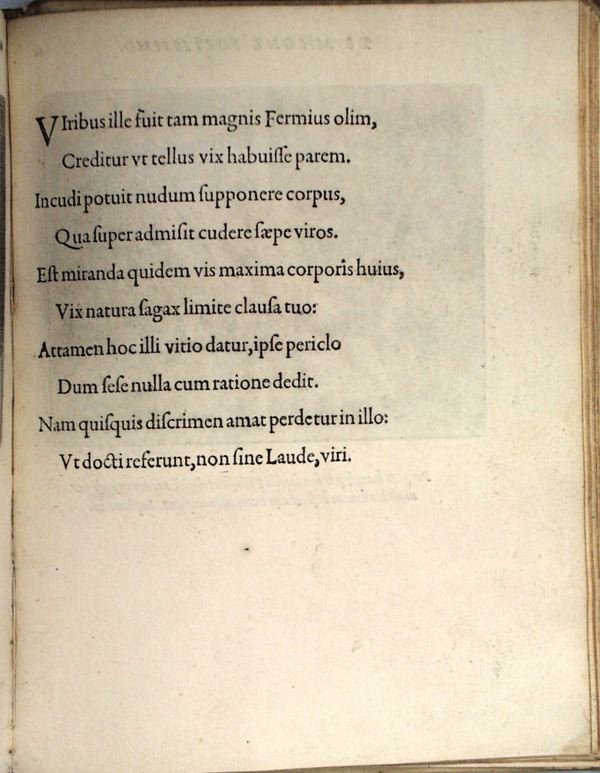 VIribus ille fuit tam magnis Fermius olim,
Creditur vt tellus vix habuiſſe parem.
Incudi potuit nudum ſupponere corpus,
Qua ſuper admiſit cudere ſæpe viros.
Eſt miranda quidem vis maxima corporis huius,
Vix natura ſagax limite clauſa tuo:
Attamen hoc illi vitio datur, ipſe periclo
Dum ſeſe nulla cum ratione dedit.
Nam quiſquis diſcrimen amat perdetur in illo:
Vt docti referunt, non ſine Laude, viri.